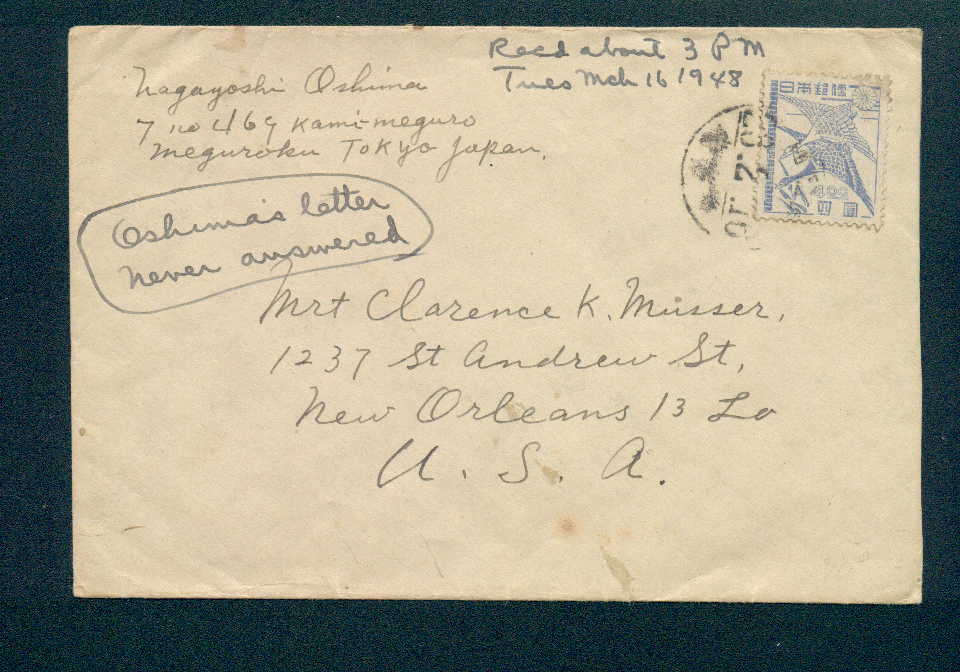 Recd about 3 PM
Tues Mch 16 1948
Nagayoshi Oshima
7 no 469 Kami-meguro
meguroku Tokyo Japan.
日本郵便
4.00
Oshima's letter
never answered
Mrt Clarence K. Musser,
1237 St Andrew St,
New Orleans 13 La
U. S. A.